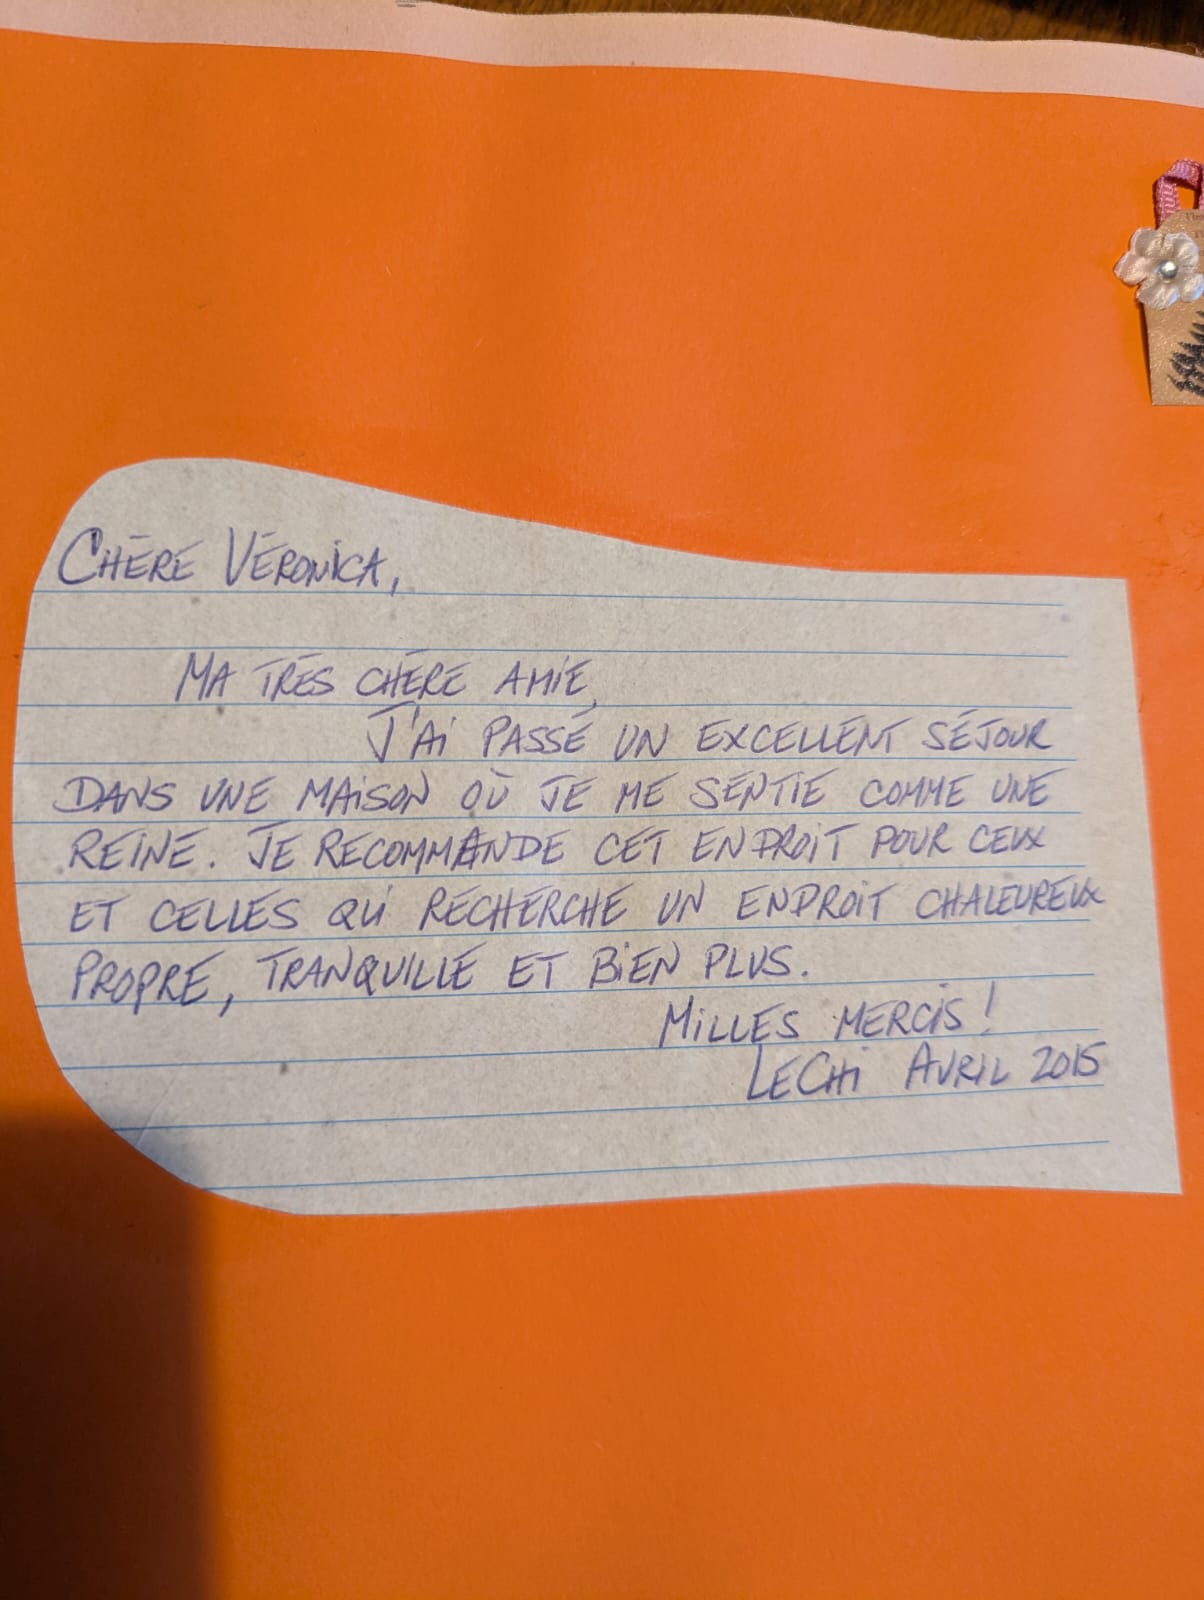 CHÈRE VÉRONICA,
MA TRÈS CHÈRE AMIE,
J'AI PASSÉ UN EXCELLENT SÉJOUR
DANS UNE MAISON OÙ JE ME SENTIE COMME UNE
REINE. JE RECOMMANDE CET ENDROIT POUR CEUX
ET CELLES QUI RECHERCHE UN ENDROIT CHALEUREUX
PROPRE, TRANQUILLE ET BIEN PLUS.
MILLES MERCIS!
LECHI AVRIL 2015